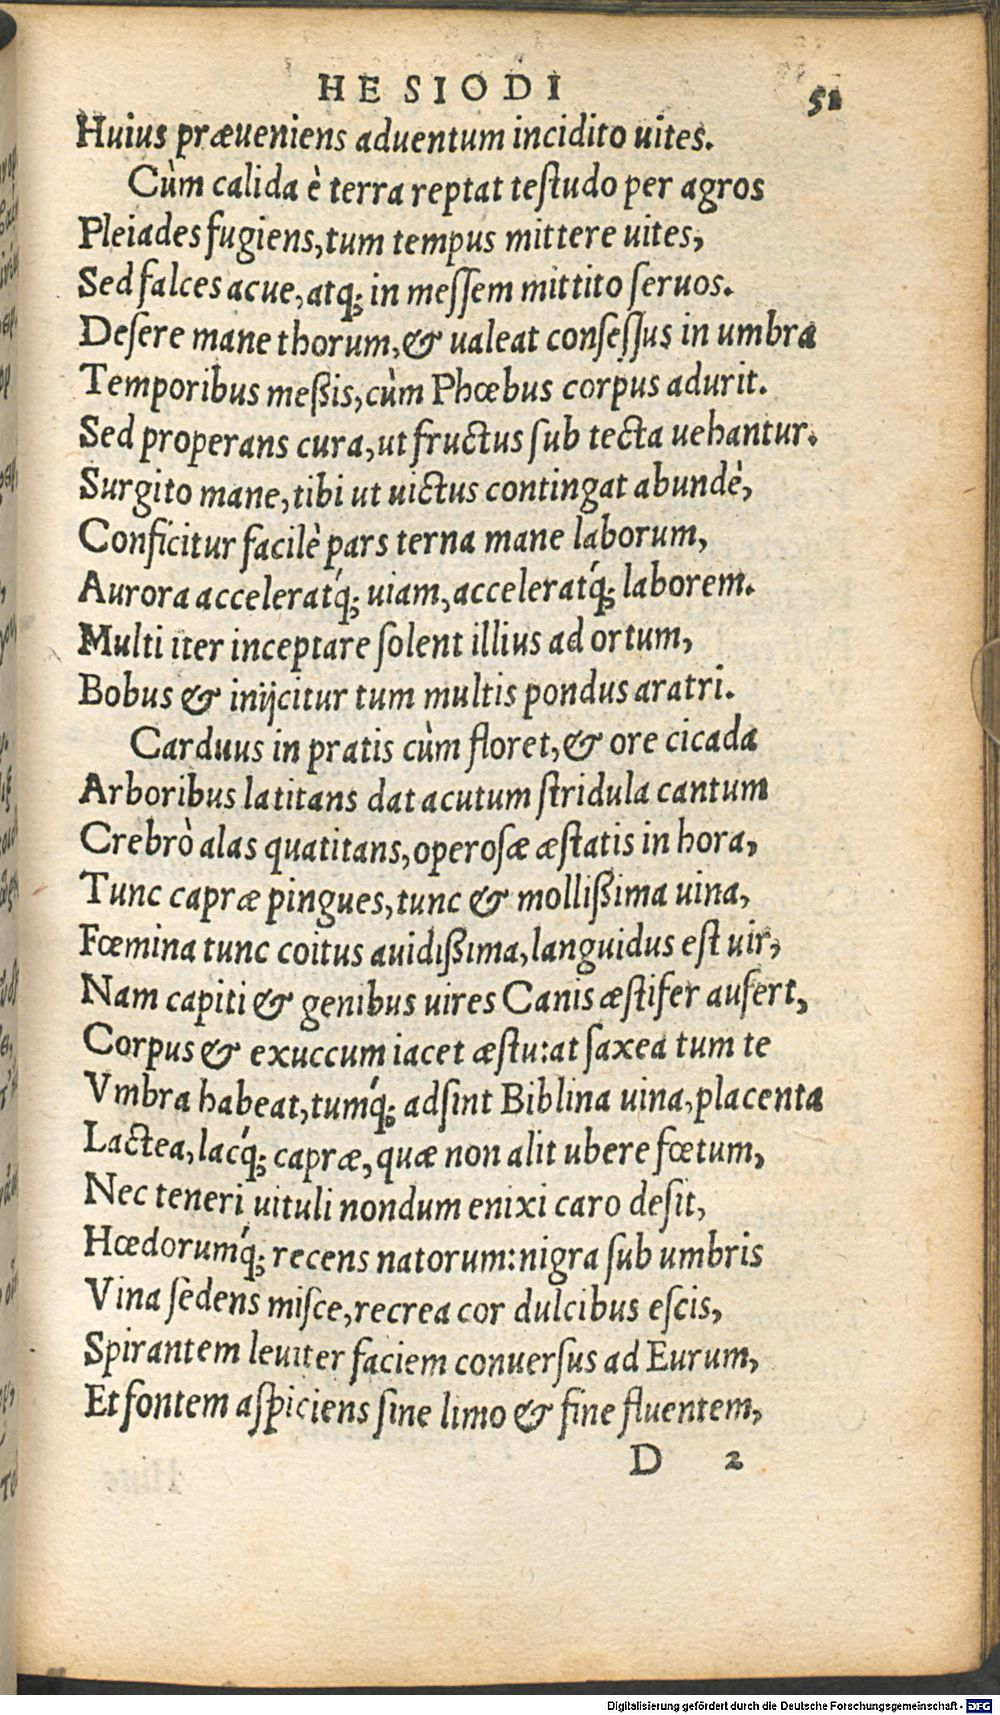 HESIODI 51
Huius præueniens aduentum incidito uites.
Cùm calida è terra reptat teſtudo per agros
Pleiades fugiens, tum tempus mittere uites,
Sed falces acue, atq; in meſſem mittito ſeruos.
Deſere mane thorum, & ualeat conſeſſus in umbra
Temporibus meßis, cùm Phœbus corpus adurit.
Sed properans cura, ut fructus ſub tecta uehantur.
Surgito mane, tibi ut uictus contingat abundè,
Conficitur facilè pars terna mane laborum,
Aurora accelerat́q; uiam, accelerat́q; laborem.
Multi iter inceptare ſolent illius ad ortum,
Bobus & inijcitur tum multis pondus aratri.
Carduus in pratis cùm floret, & ore cicada
Arboribus latitans dat acutum ſtridula cantum
Crebrò alas quatitans, operoſæ æſtatis in hora,
Tunc capræ pingues, tunc & mollißima uina,
Fœmina tunc coitus auidißima, languidus eſt uir,
Nam capiti & genibus uires Canis æſtifer aufert,
Corpus & exuccum iacet æſtu: at ſaxea tum te
Vmbra habeat, tuḿq; adſint Biblina uina, placenta
Lactea, lać q; capræ, quæ non alit ubere fœtum,
Nec teneri uituli nondum enixi caro deſit,
Hœdoruḿq; recens natorum: nigra ſub umbris
Vina ſedens miſce, recrea cor dulcibus eſcis,
Spirantem leuiter faciem conuerſus ad Eurum,
Et fontem aſpiciens ſine limo & fine fluentem,
D 2
Digitalisierung gefördert durch die Deutsche Forschungsgemeinschaft - DFG